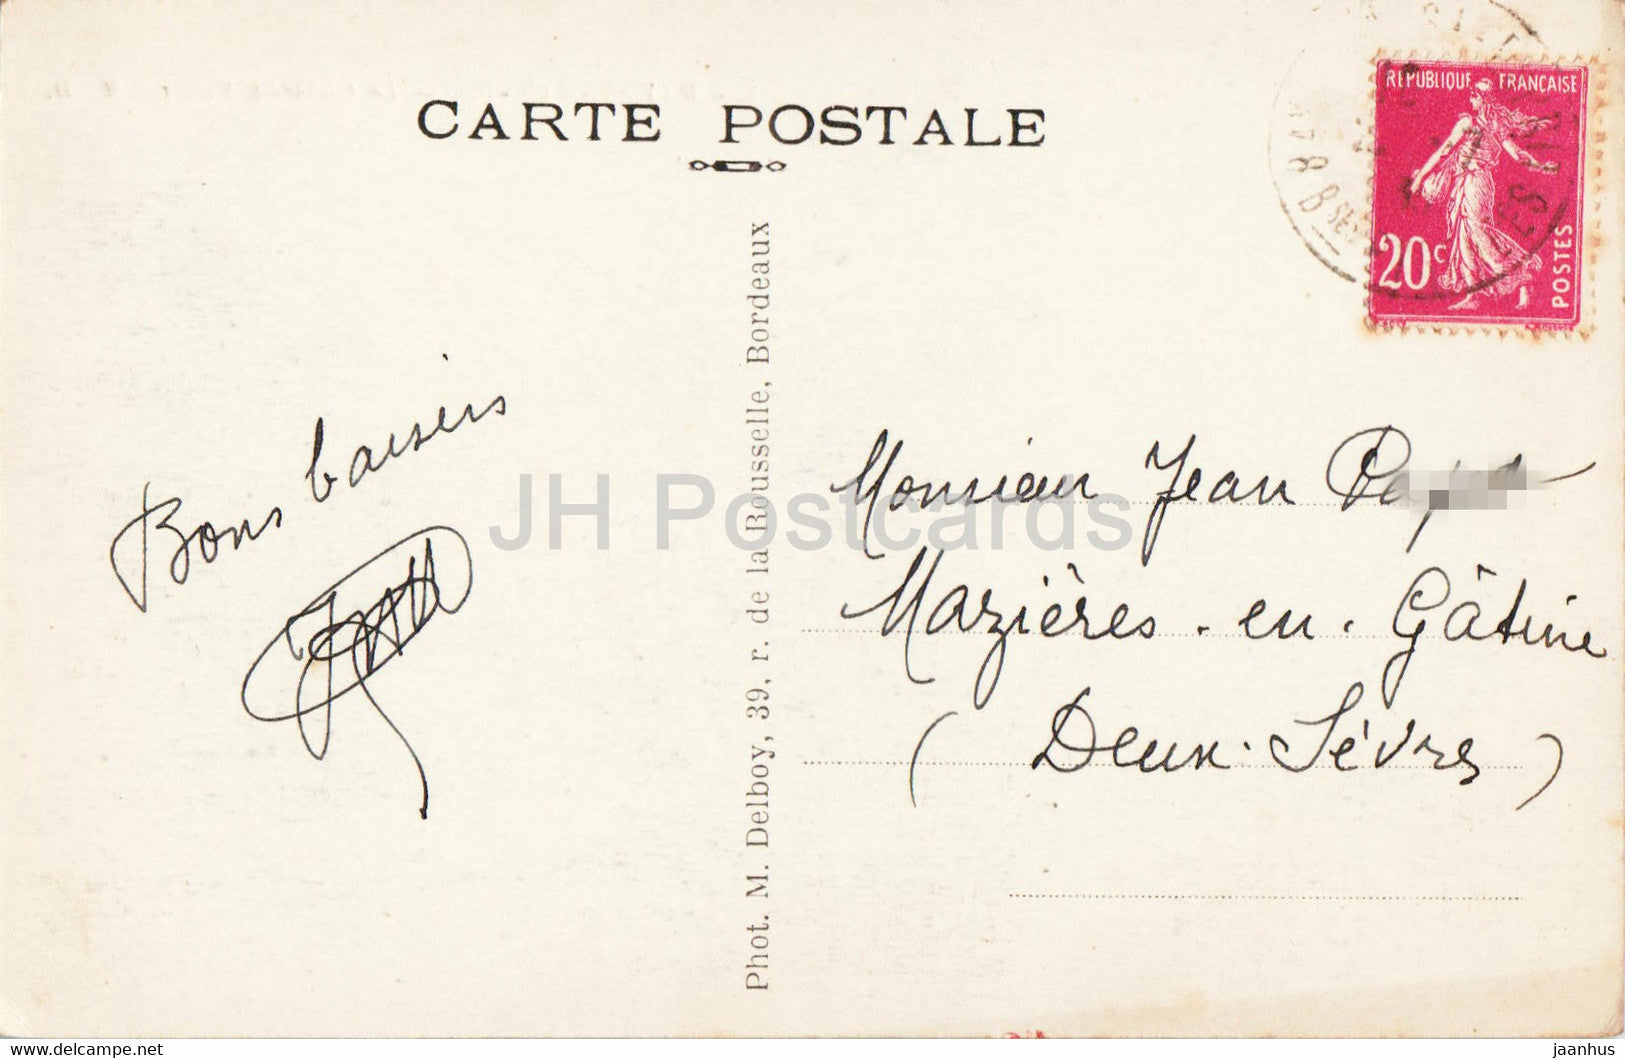 CARTE POSTALE
RÉPUBLIQUE FRANÇAISE
20c
POSTES
Bons baisers
Phot. M. Delboy, 39, r. de la Rousselle, Bordeaux
Monsieur Jean
Mazières-en-Gâtine
(Deux-Sèvres)
JH Postcards
https://jhpostcards.com
jaanhus